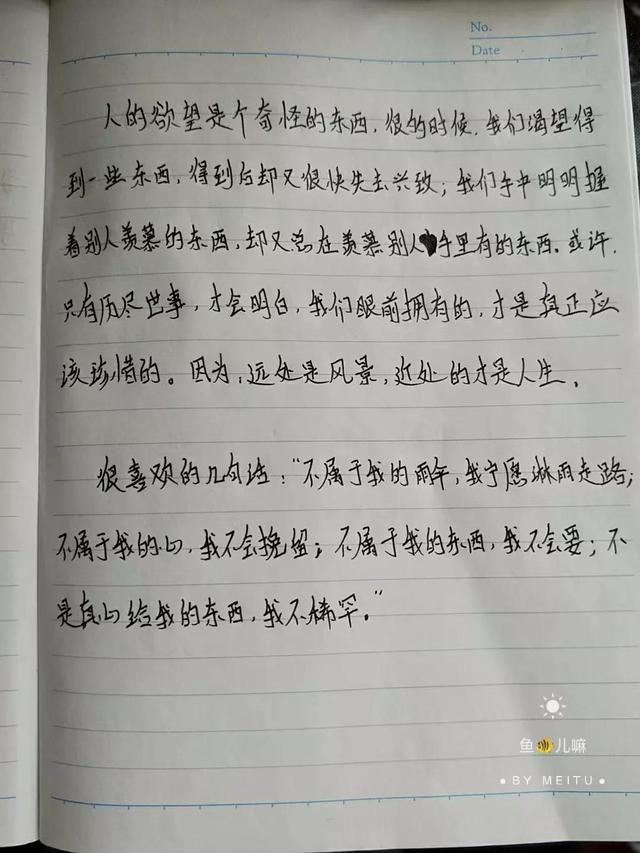 No.
Date
人的欲望是个奇怪的东西，很多时候，我们渴望得
到一些东西，得到后却又很快失去兴致；我们手中明明握
着别人羡慕的东西，却又总在羡慕别人手里有的东西。或许，
只有历尽世事，才会明白，我们眼前拥有的，才是真正应
该珍惜的。因为，远处是风景，近处的才是人生。
很喜欢的几句话：“不属于我的雨伞，我宁愿淋雨走路；
不属于我的心，我不会挽留；不属于我的东西，我不会要；不
是真心给我的东西，我不稀罕。”
鱼儿嘛
BY MEITU